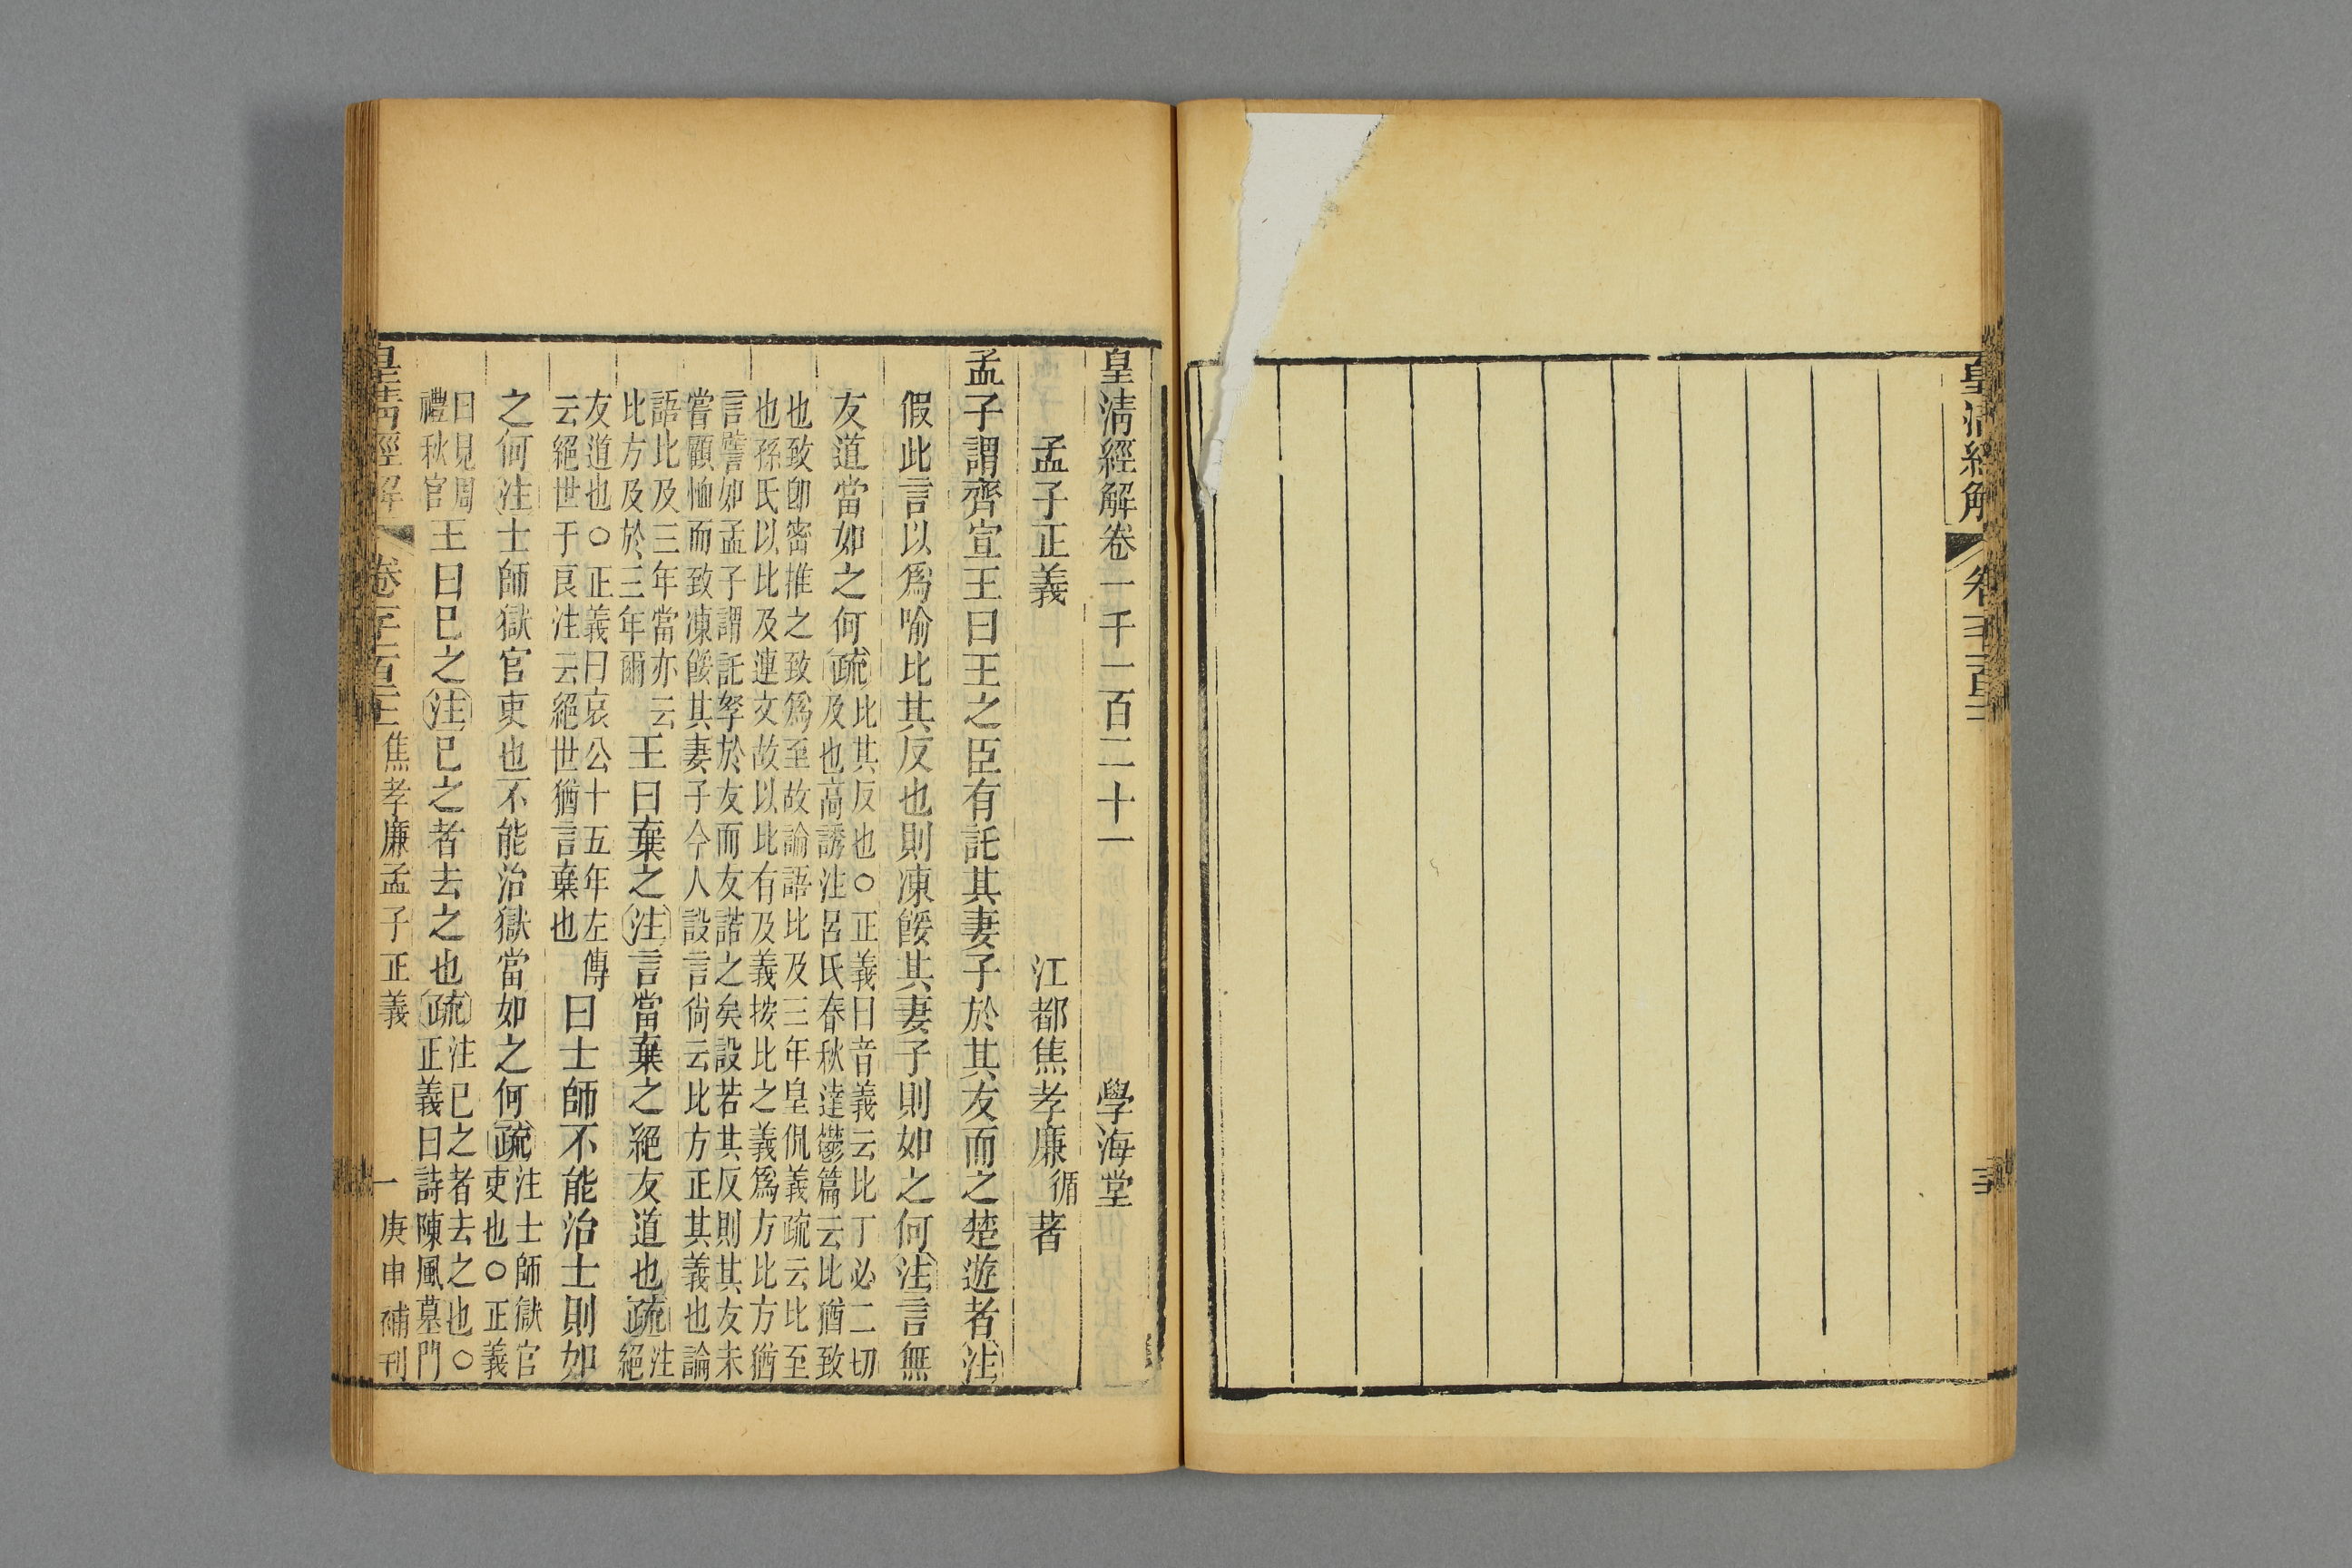 皇清經解
皇清經解卷一千一百二十一 學海堂
孟子正義 江都焦孝廉循著
孟子謂齊宣王曰王之臣有託其妻子於其友而之楚遊者注
假此言以爲喻比其反也則凍餒其妻子則如之何注言無
友道當如之何疏比其反也○正義曰音義云比丁必二切
及也高誘注呂氏春秋達鬱篇云比猶致
也致卽密推之致爲至故論語比及三年皇侃義疏云比至
也孫氏以比及連文故以比有及義按比之義爲方比方猶
言譬如孟子謂託孥於友而友諾之矣設若其反則其友未
嘗顧恤而致凍餒其妻子今人設言倘云比方正其義也論
語比及三年當亦云
比方及於三年爾
王曰棄之注言當棄之絕友道也疏注
絕
友道也○正義曰哀公十五年左傳
云絕世于良注云絕世猶言棄也
曰士師不能治士則如
之何注士師獄官吏也不能治獄當如之何疏注士師獄官
吏也○正義
曰見周
禮秋官
王曰已之注已之者去之也疏注已之者去之也○
正義曰詩陳風墓門
皇清經解 卷 焦孝廉孟子正義 一 庚申補刊